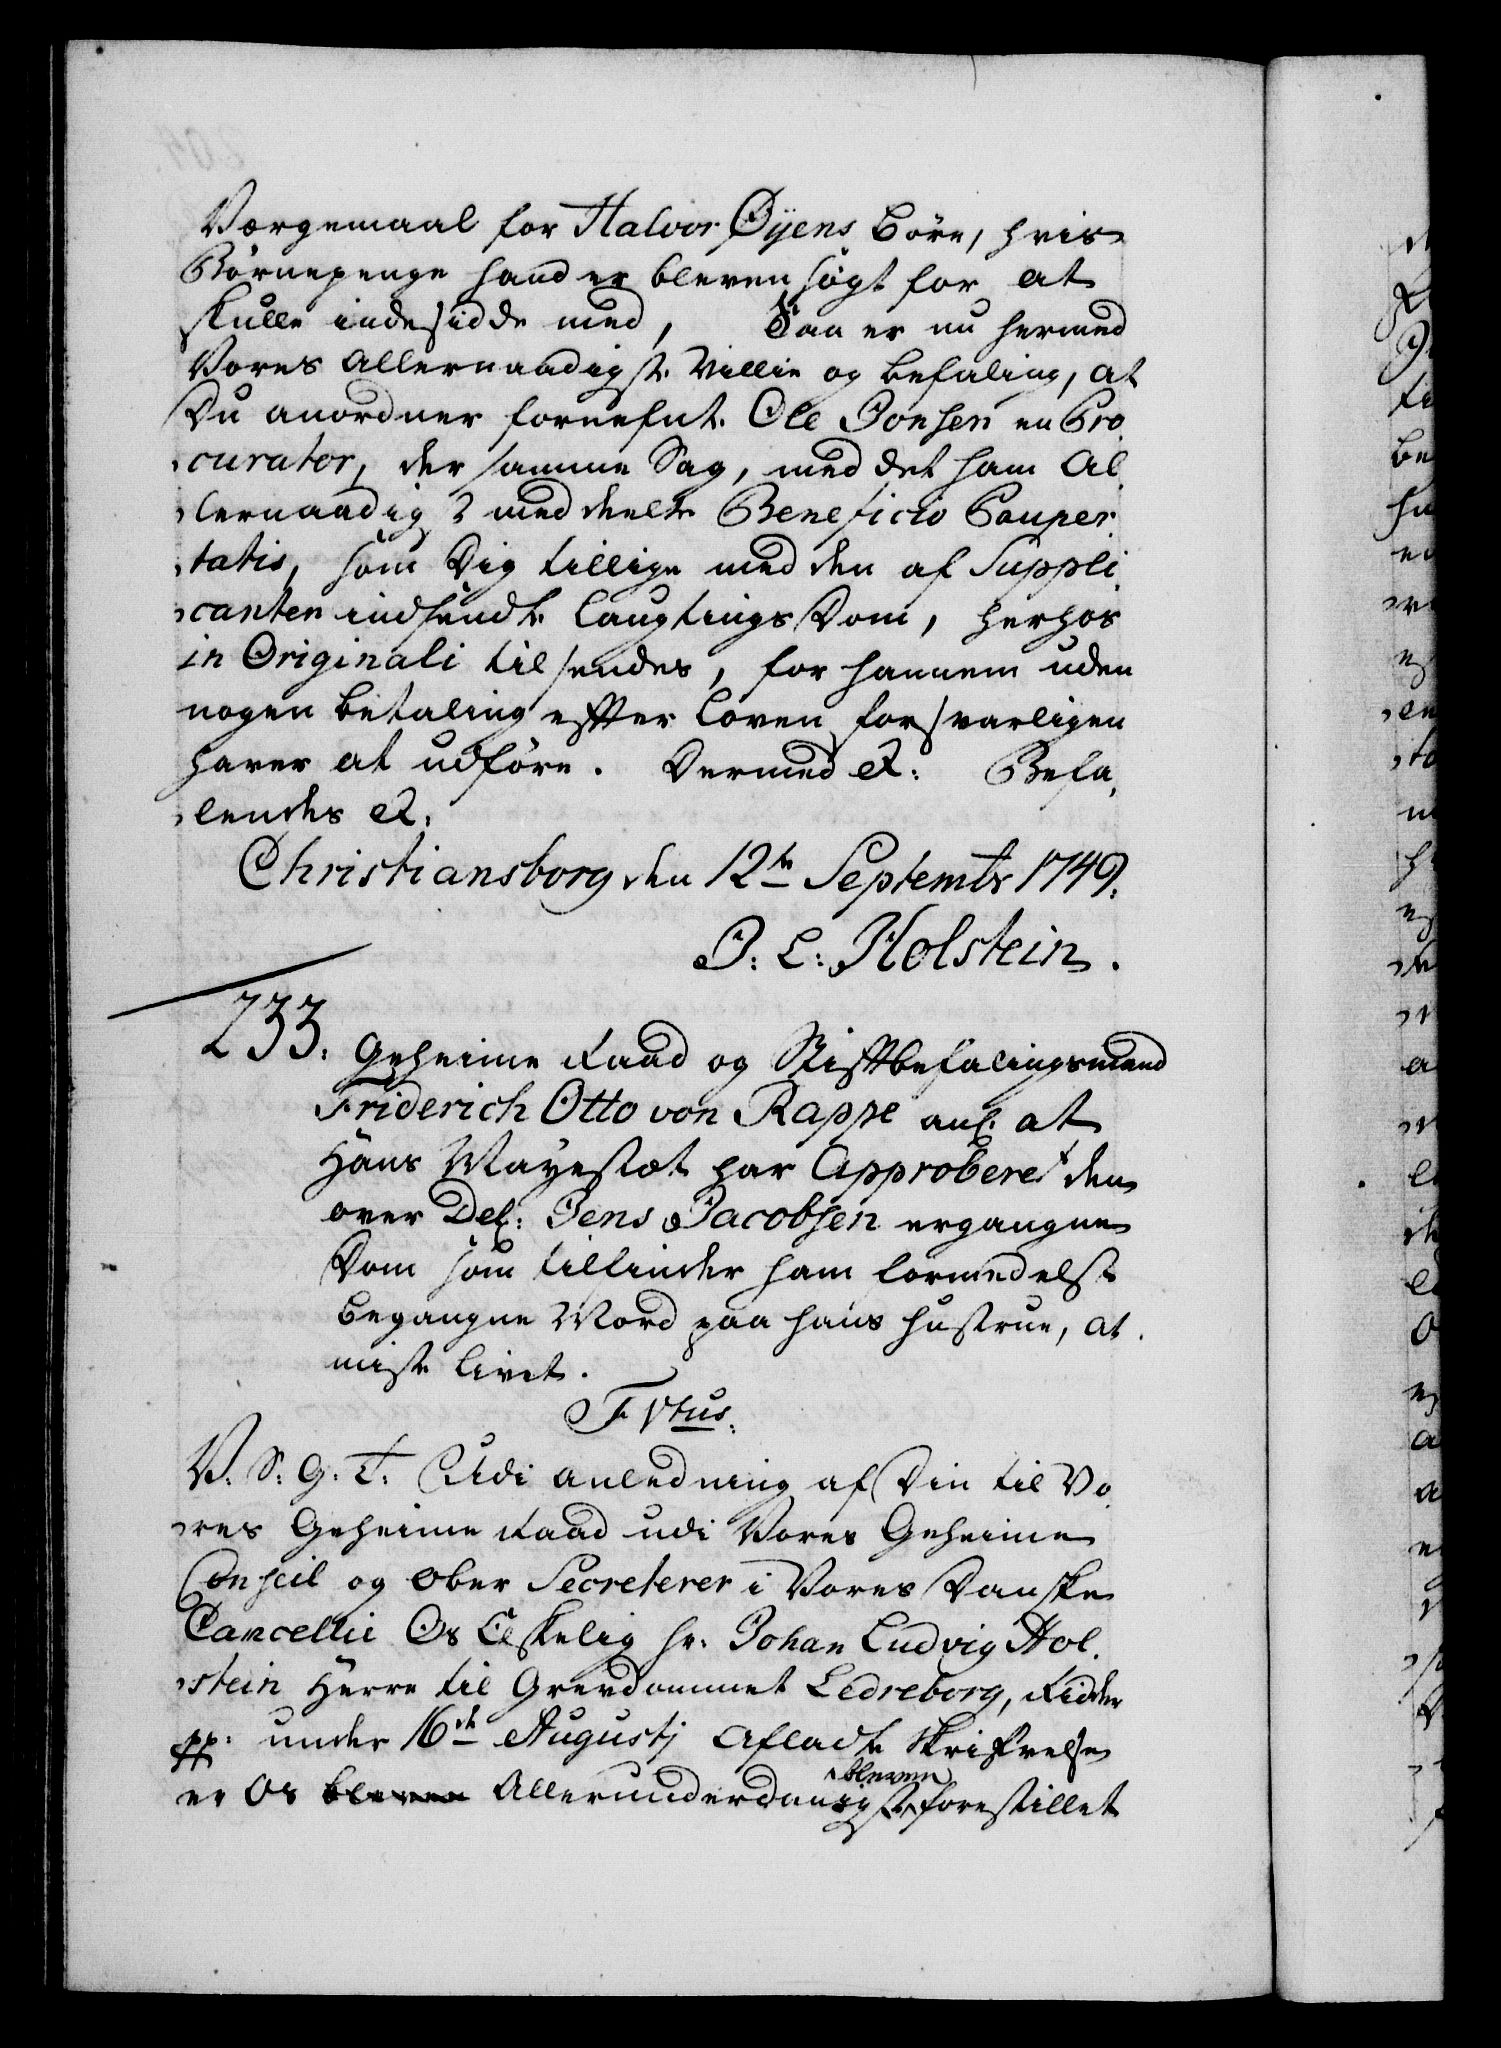 Værgemaal for Halvor Öyens Börn, hvis
Börnepenge hand er bleven sögt for at
skulle indesidde med, Saa er nu hermed
Vores allernaadigste Villie og befaling, at
Du anordner fornefnte Ole Jonsen en Pro
curator, der samme Sag, med det ham Al
lernaadigst meddeelte Beneficio Pauper
tatis, som Dig tillige med den af Suppli
canten indsendte Laugtings Dom, herhos
in Originali tilsendes, for hannem uden
nogen betaling efter Loven forsvarligen
haver at udföre. Dermed &: Befa
lendes &:
Christiansborg den 12te Septembr 1749.
J: L: Holstein.
233. Geheime Raad og Stiftbefalingsmand
Friderich Otto von Rappe anl. at
Hans Mayestæt har Approberet den
over Del: Jens Jacobsen ergangne
Dom som tilfinder ham formedelst
begangne Mord paa hans Hustrue, at
miste Livet.
F Vtus.
V. S: G. T. Udi anledning af Din til Vo
res Geheime Raad udi Vores Geheime
Conseil og Ober Secreterer i Vores Danske
Cancellie Os Elskelig Hr. Johan Ludvig Hol
stein Herre til Grevdommet Ledreborg, Ridder
pp. under 16de Augustj afladte Skrifvelse
er Os bleven Allerunderdanigst bleven forestillet